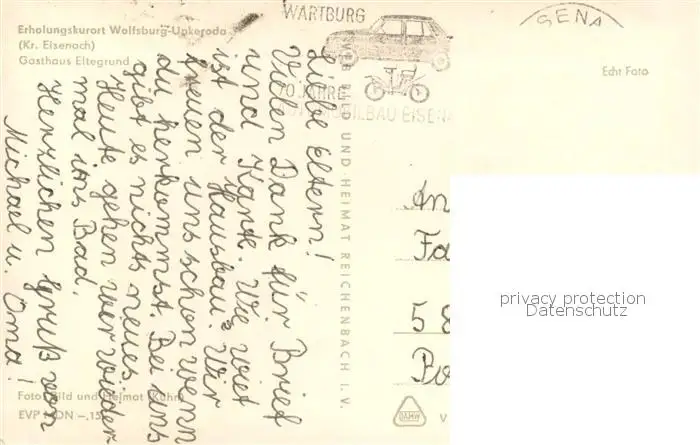 Erholungskurort Wolfsburg-Unkeroda
(Kr. Eisenach)
Gasthaus Eltegrund
WARTBURG
70 JAHRE
AUTOMOBILBAU EISENA
Echt Foto
Liebe Eltern!
Vielen Dank für Brief
und Karte. Wie weit
ist der Hausbau? Wir
freuen uns schon wenn
du herkommst. Bei uns
gibt es nichts neues.
Heute gehen wir wieder
mal ins Bad.
Herzlichen Gruß von
Michael u. Oma!
VEB BILD UND HEIMAT REICHENBACH I. V.
An
Fa
58
privacy protection
Datenschutz
Foto: Bild und Heimat (Kühn)
EVP MDN –,15
DAMW
V